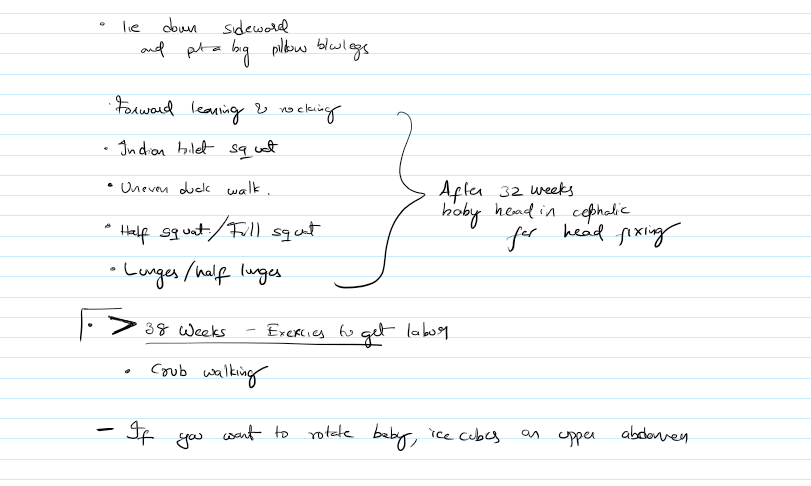 • lie down sideword
and put a big pillow b/w legs
• Forward leaning & rocking
• Indian tilet squat
• Uneven duck walk.
• Half squat/Full squat
• Lunges/half lunges
After 32 weeks
baby head in cephalic
for head fixing
• > 38 weeks - Exercies to get labor
• Crub walking
- If you want to rotate baby, ice cubes on upper abdomen